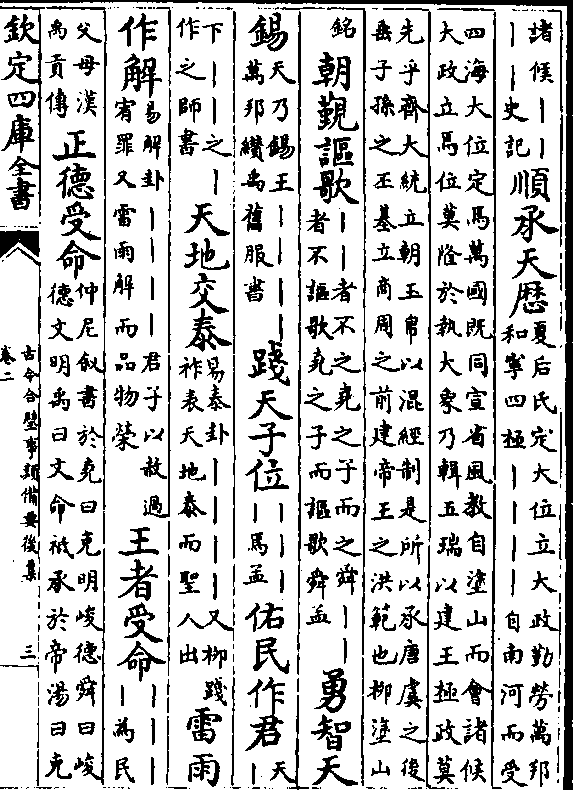 諸侯｜｜
｜｜史記
順承天歴
夏后氏定大位立大政勤勞萬邦
和寧四極｜｜｜｜自南河而受
四海大位定焉萬國既同宣省風教自塗山而會諸侯
大政立焉位莫隆於執大象乃輯五瑞以建王極政莫
先乎齊大統立朝玉帛以混經制是所以承唐虞之後
垂子孫之丕基立商周之前建帝王之洪範也柳塗山
銘
朝覲謳歌
｜｜者不之堯之子而之舜｜｜
者不謳歌堯之子而謳歌舜孟
勇智天
錫
天乃錫王｜｜｜｜
萬邦纉禹舊服書
踐天子位
｜｜｜
｜焉孟
佑民作君
天
｜
下｜｜之｜
作之師書
天地交泰
易泰卦｜｜｜｜又柳
祚表天地泰而聖人出
踐
雷雨
作解
易解卦｜｜｜｜君子以赦過
宥罪又雷雨解而品物榮
王者受命
｜｜｜
｜為民
父母漢
禹貢傳
正德受命
仲尼叙書於堯曰克明峻德舜曰峻
德文明禹曰文命祗承於帝湯曰克
欽定四庫全書
古今合璧事類備要後集
卷二
三